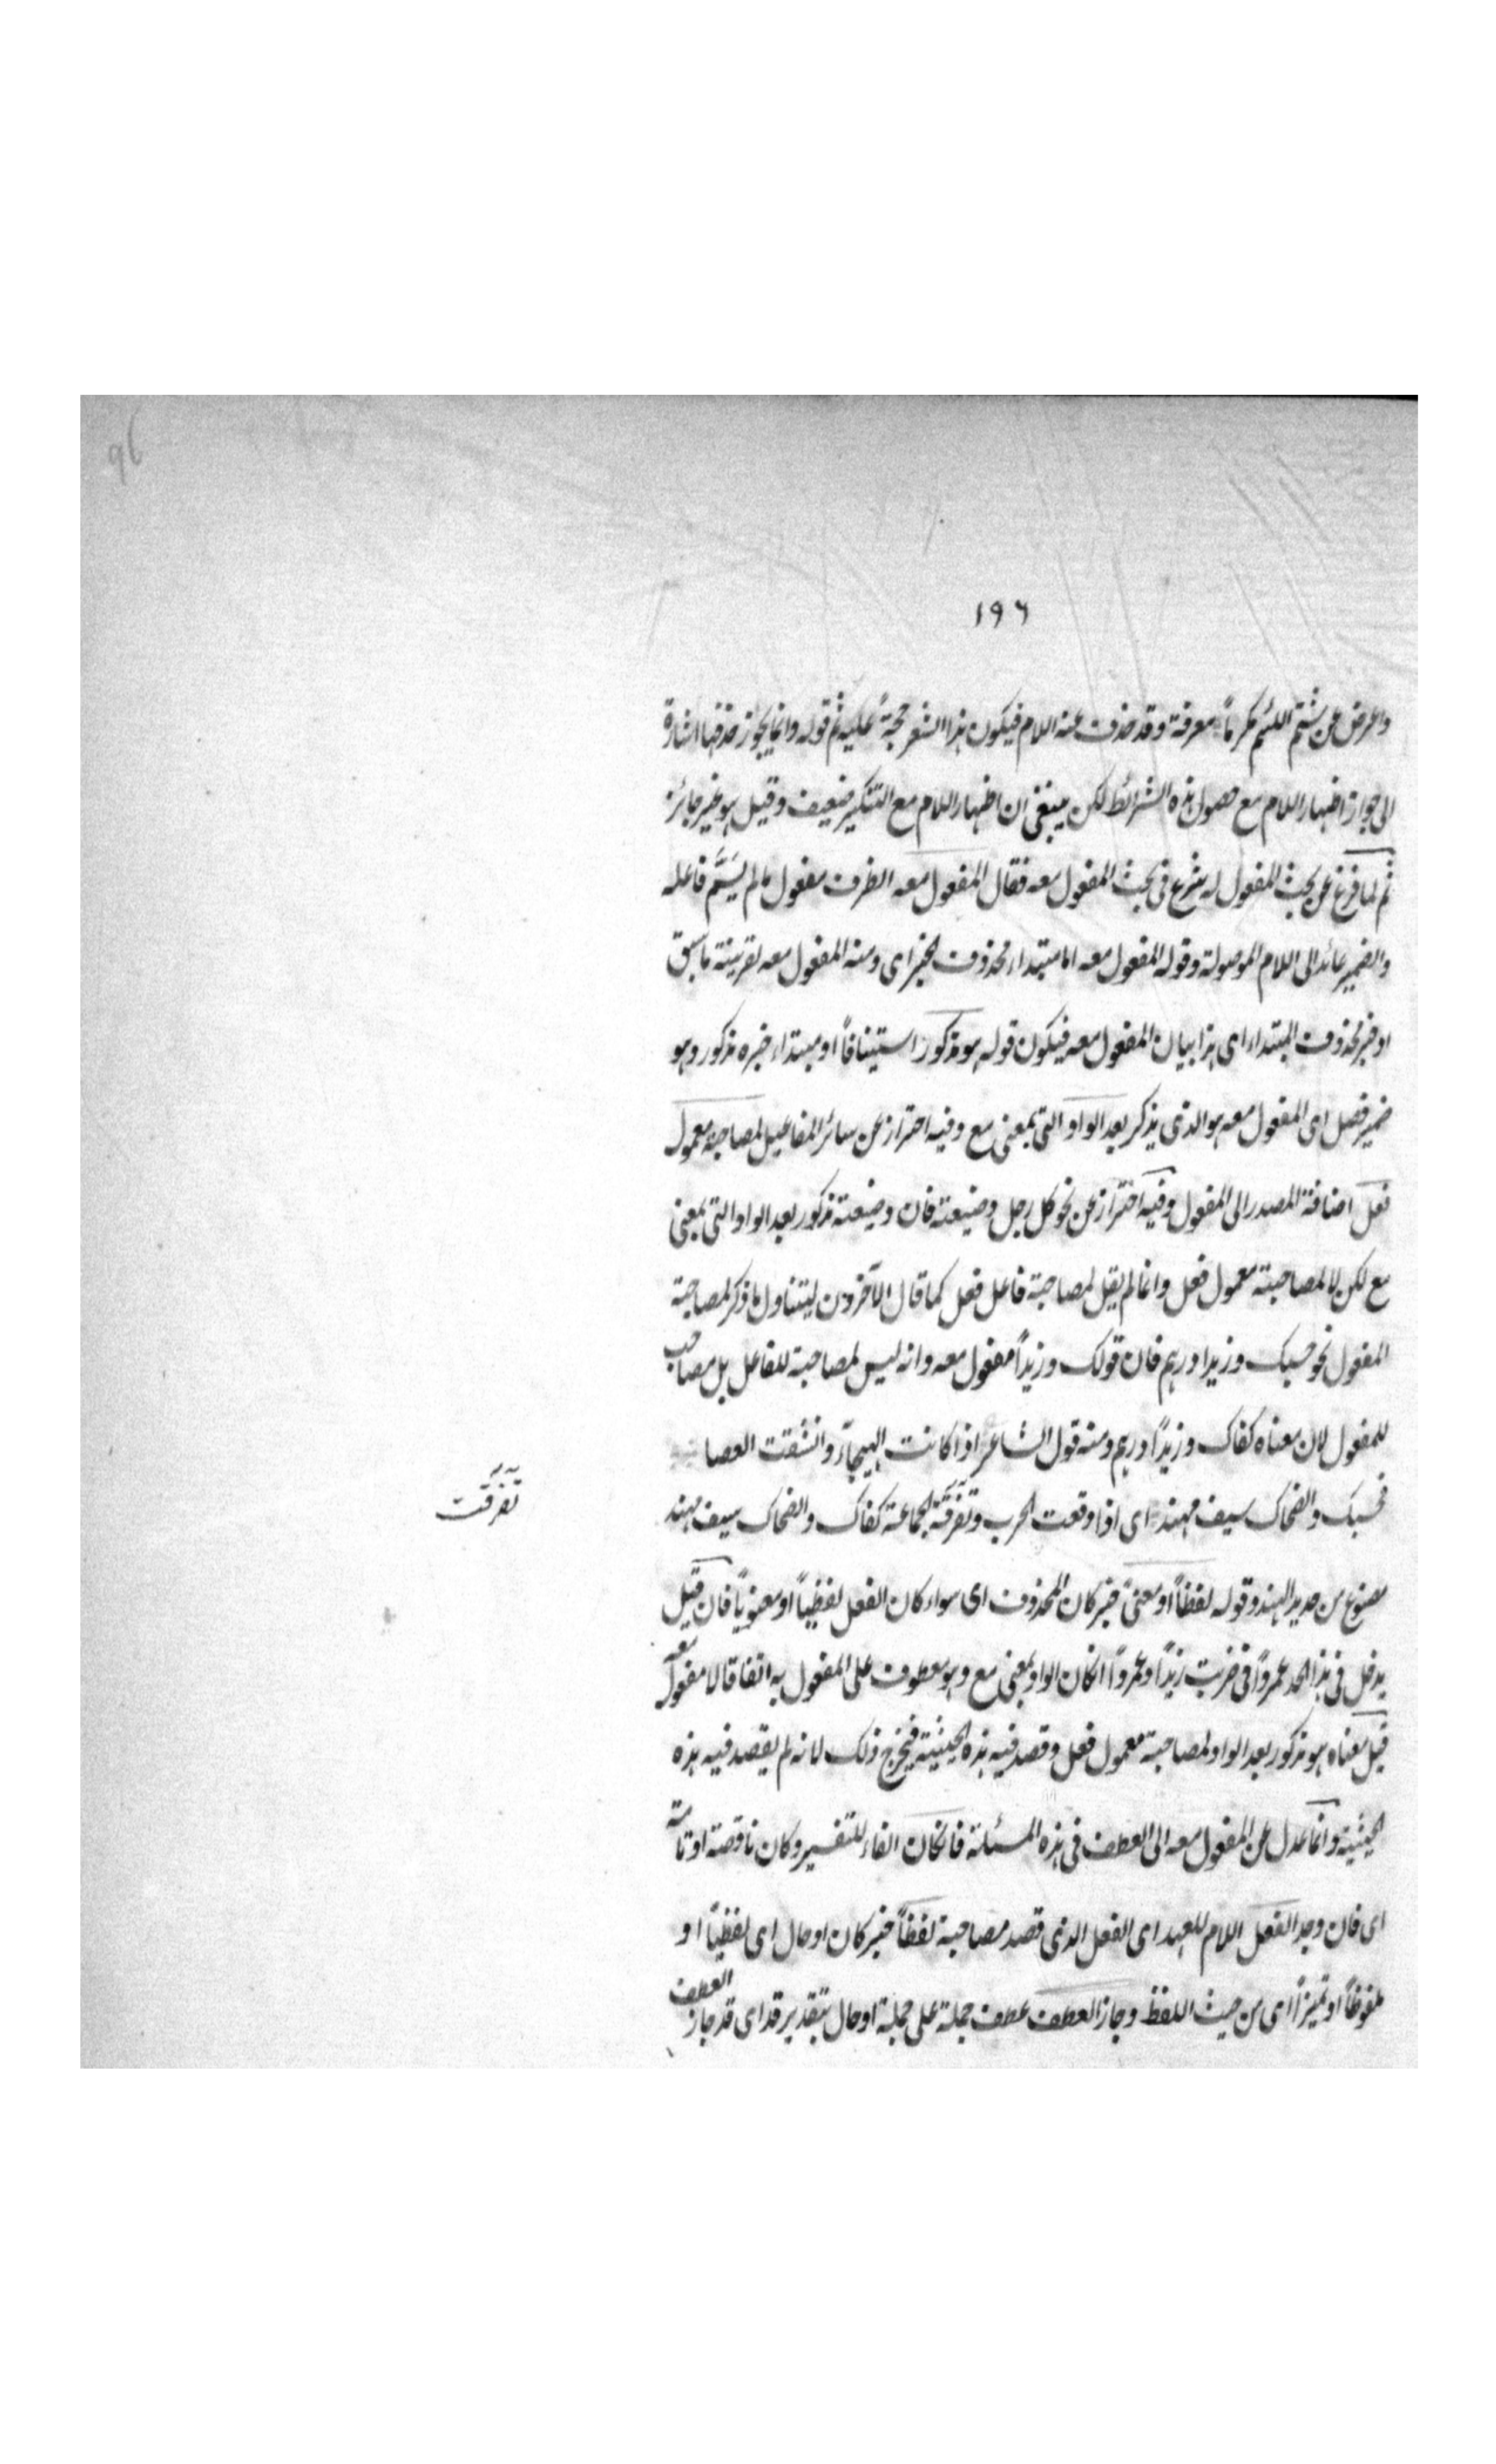 96
١٩٦
واعرض عن شتم اللئيم تكرماً معرفة وقد حذف عنه اللام فيكون هذا الشعر حجة عليه ثم قوله وانما يجوز حذفها اشارة
الى جواز اظهار اللام مع حصول هذه الشرائط لكن ينبغى ان اظهار اللام مع التنكير ضعيف وقيل هو غير جائز
ثم لما فرغ عن بحث المفعول له شرع فى بحث المفعول معه فقال المفعول معه الظرف مفعول مالم يُسَمَّ فاعله
والضمير عائد الى اللام الموصولة وقوله المفعول معه اما مبتداء محذوف الخبر اى ومنه المفعول معه بقرينة ما سبق
او خبر محذوف المبتداء اى هذا بيان المفعول معه فيكون قوله هو مذكور استينافاً او مبتداء خبره مذكور وهو
ضمير فصل اى المفعول معه هو الذى يذكر بعد الواو التى بمعنى مع وفيه احتراز عن سائر المفاعيل لمصاحبة معمول
فعل اضافة المصدر الى المفعول وفيه احتراز عن نحو كل رجل وضيعته فان وضيعته مذكور بعد الواو التى بمعنى
مع لكن لا لمصاحبة معمول فعل وانما لم يقل لمصاحبة فاعل فعل كما قال الآخرون ليتناول ما ذكر لمصاحبة
المفعول نحو حسبك وزيدا درهم فان قولك وزيداً مفعول معه وانه ليس لمصاحبة للفاعل بل مصاحب
للمفعول لان معناه كفاك وزيداً درهم ومنه قول الشاعر اذا كانت الهيجاء وانشقت العصا
فحسبك والضحاك سيف مهند اى اذا وقعت الحرب وتفرقة الجماعة كفاك والضحاك سيف مهند
تفرقت
مصنوع من حديد الهند وقوله لفظاً او معنى خبر كان المحذوف اى سواء كان الفعل لفظياً او معنوياً فان قيل
يدخل فى هذا الحد عمرواً فى ضربت زيداً وعمرواً انكان الواو بمعنى مع وهو معطوف على المفعول به اتفاقا لا مفعول معه
قيل معناه هو مذكور بعد الواو لمصاحبة معمول فعل وقصد فيه هذه الحيثية فيخرج ذلك لانه لم يقصد فيه هذه
الحيثية وانما عدل عن المفعول معه الى العطف فى هذه المسئلة فانكان الفاء للتفسير وكان ناقصة او تامة
اى فان وجد الفعل اللام للعهد اى الفعل الذى قصد مصاحبة لفظاً خبر كان او حال اى لفظياً او
ملفوظاً او تميزاً اى من حيث اللفظ وجاز العطف عطف جملة على جملة او حال بتقدير قد اى قد جاز العطف